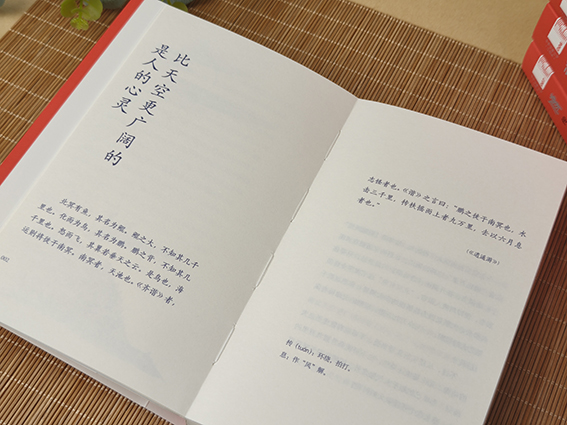 比天空更广阔的
是人的心灵
北冥有鱼，其名为鲲。鲲之大，不知其几千
里也。化而为鸟，其名为鹏。鹏之背，不知其几
千里也。怒而飞，其翼若垂天之云。是鸟也，海
运则将徙于南冥。南冥者，天池也。《齐谐》者，
002
志怪者也。《谐》之言曰：“鹏之徙于南冥也，水
击三千里，抟扶摇而上者九万里，去以六月息
者也。”
（《逍遥游》）
抟（tuán）：环绕，拍打。
息：作“风”解。